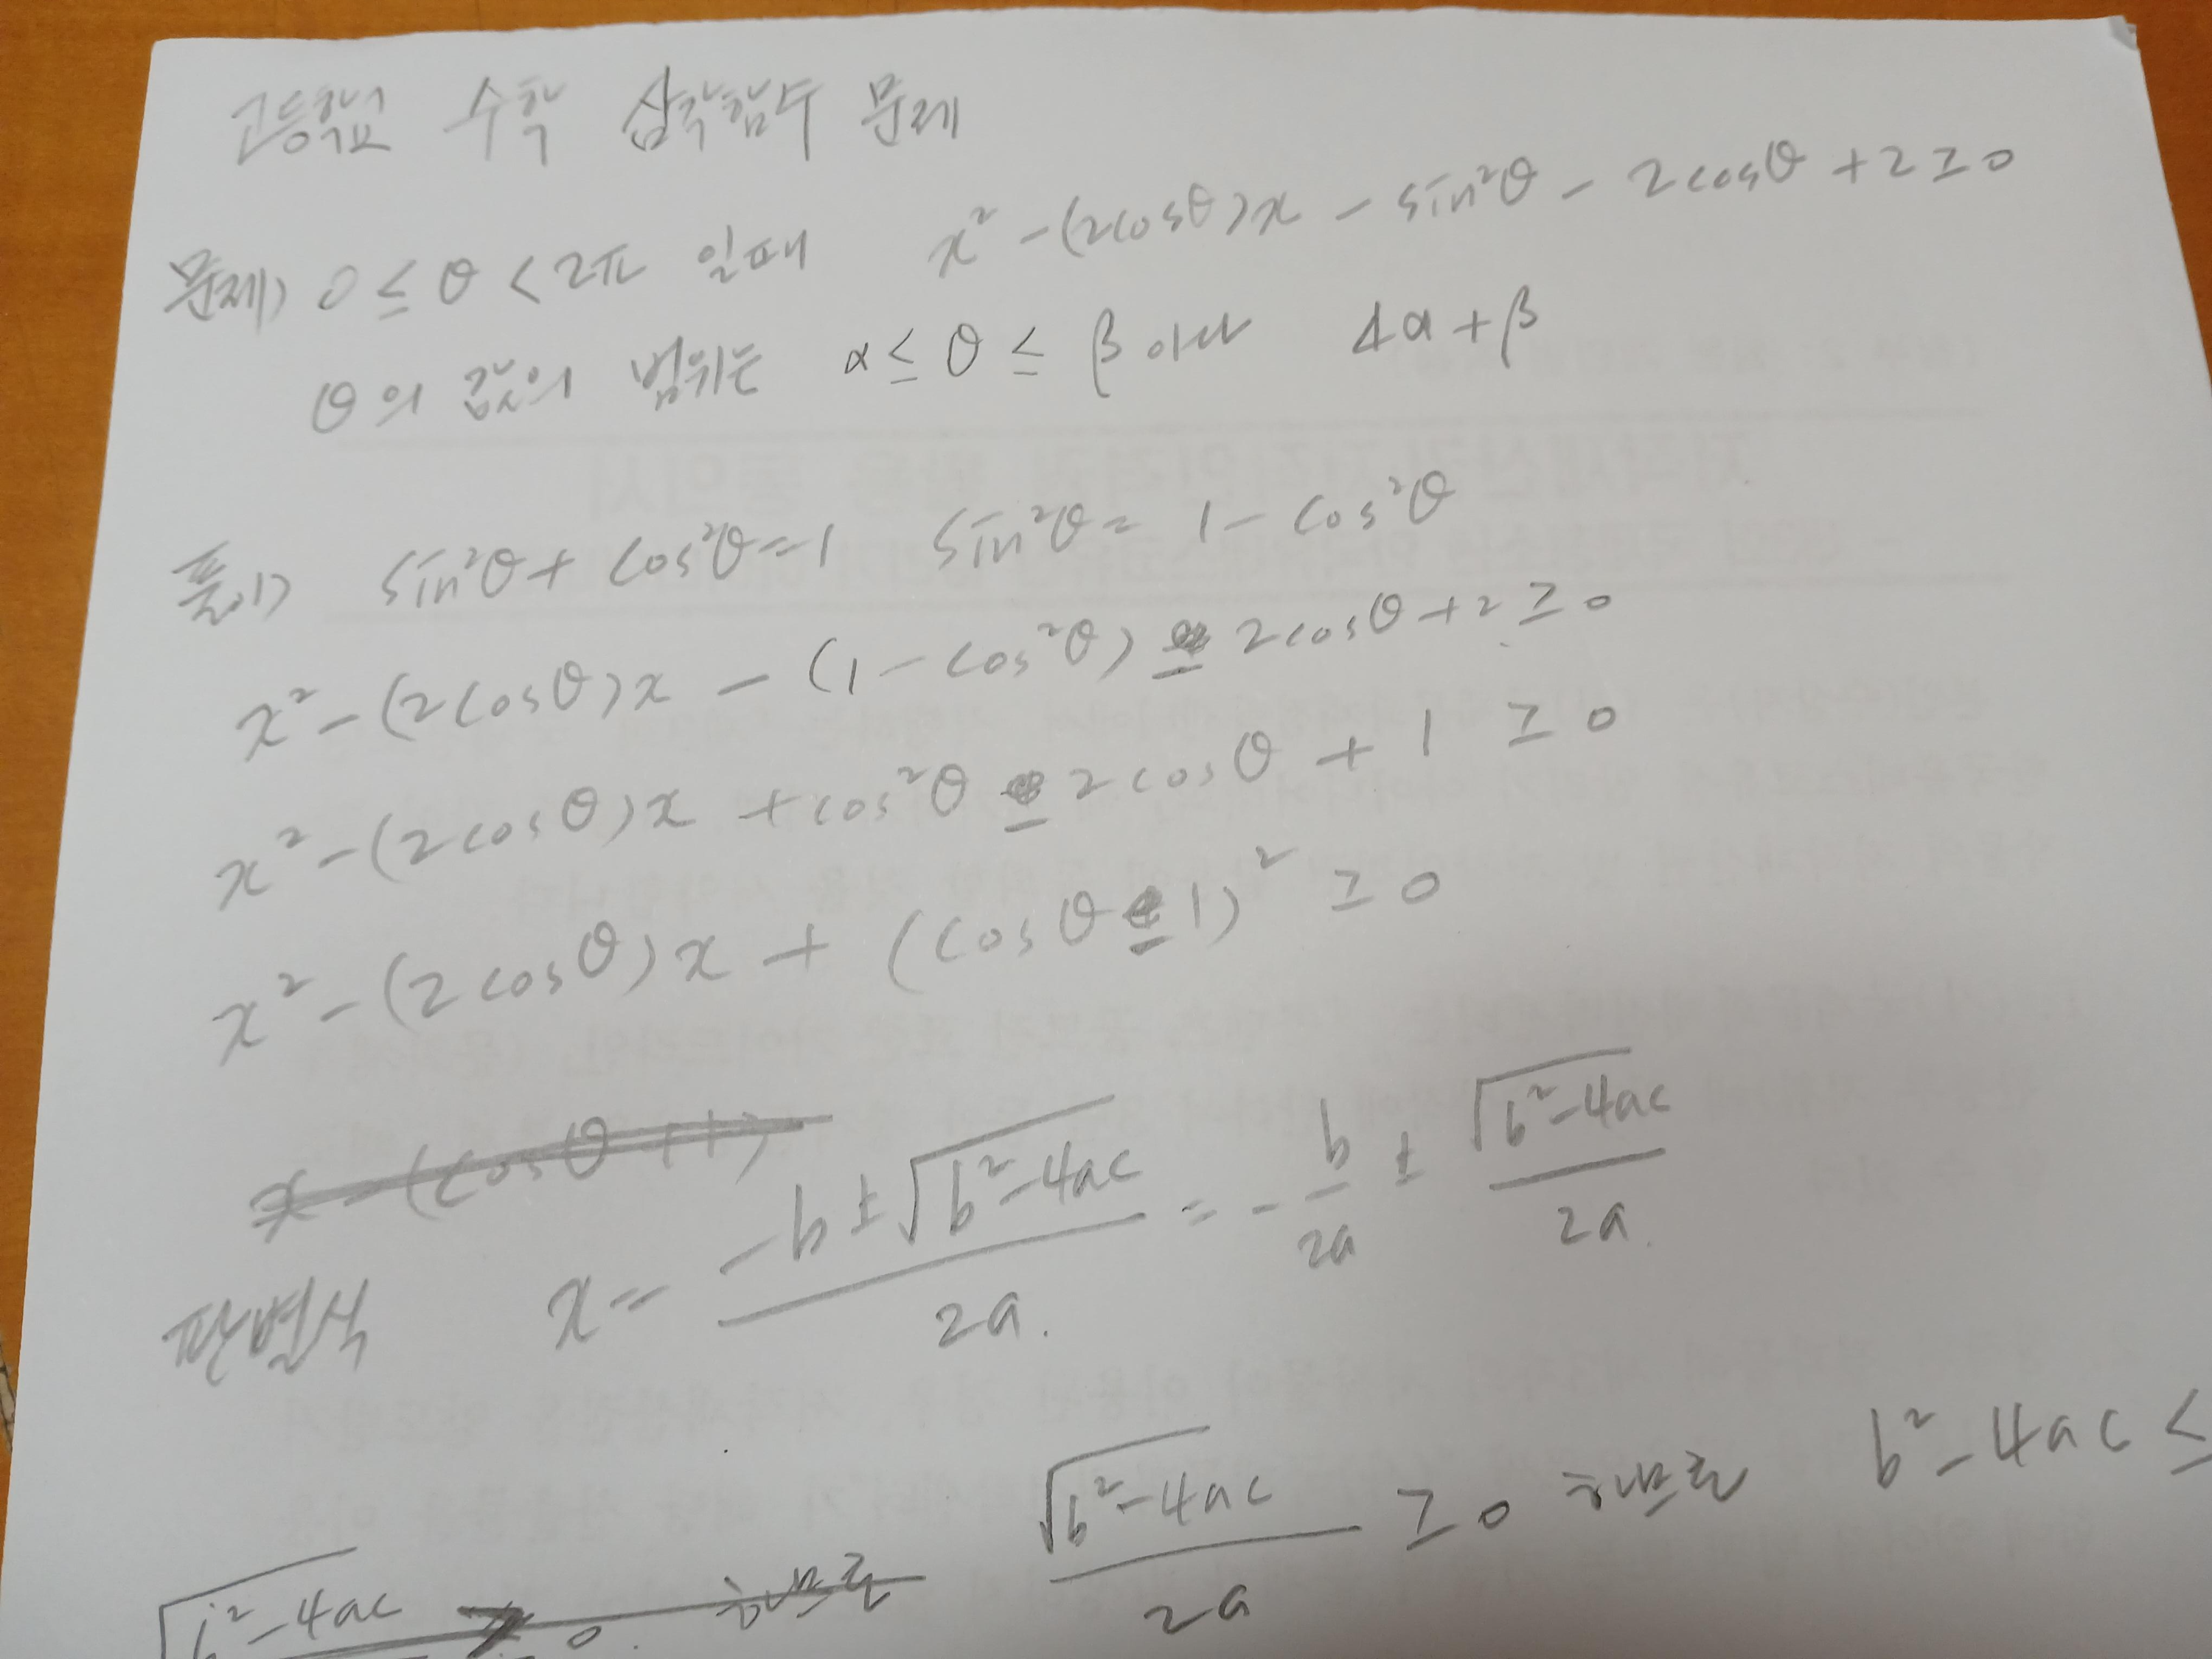 고등학교 수학 삼각함수 문제
문제) 0 ≤ θ < 2π 일때 x² - (2cosθ)x - sin²θ - 2cosθ + 2 ≥ 0
θ의 값의 범위는 α ≤ θ ≤ β 이다 4α + β
풀이) sin²θ + cos²θ = 1 sin²θ = 1 - cos²θ
x² - (2cosθ)x - (1 - cos²θ) - 2cosθ + 2 ≥ 0
x² - (2cosθ)x + cos²θ - 2cosθ + 1 ≥ 0
x² - (2cosθ)x + (cosθ - 1)² ≥ 0
x - (cosθ + 1)
판별식 x = (-b ± √(b² - 4ac)) / 2a. = -b/2a ± √(b² - 4ac) / 2a.
√(b² - 4ac) / 2a ≥ 0 하므로 b² - 4ac ≤
√(b² - 4ac) ≥ 0. 하므로